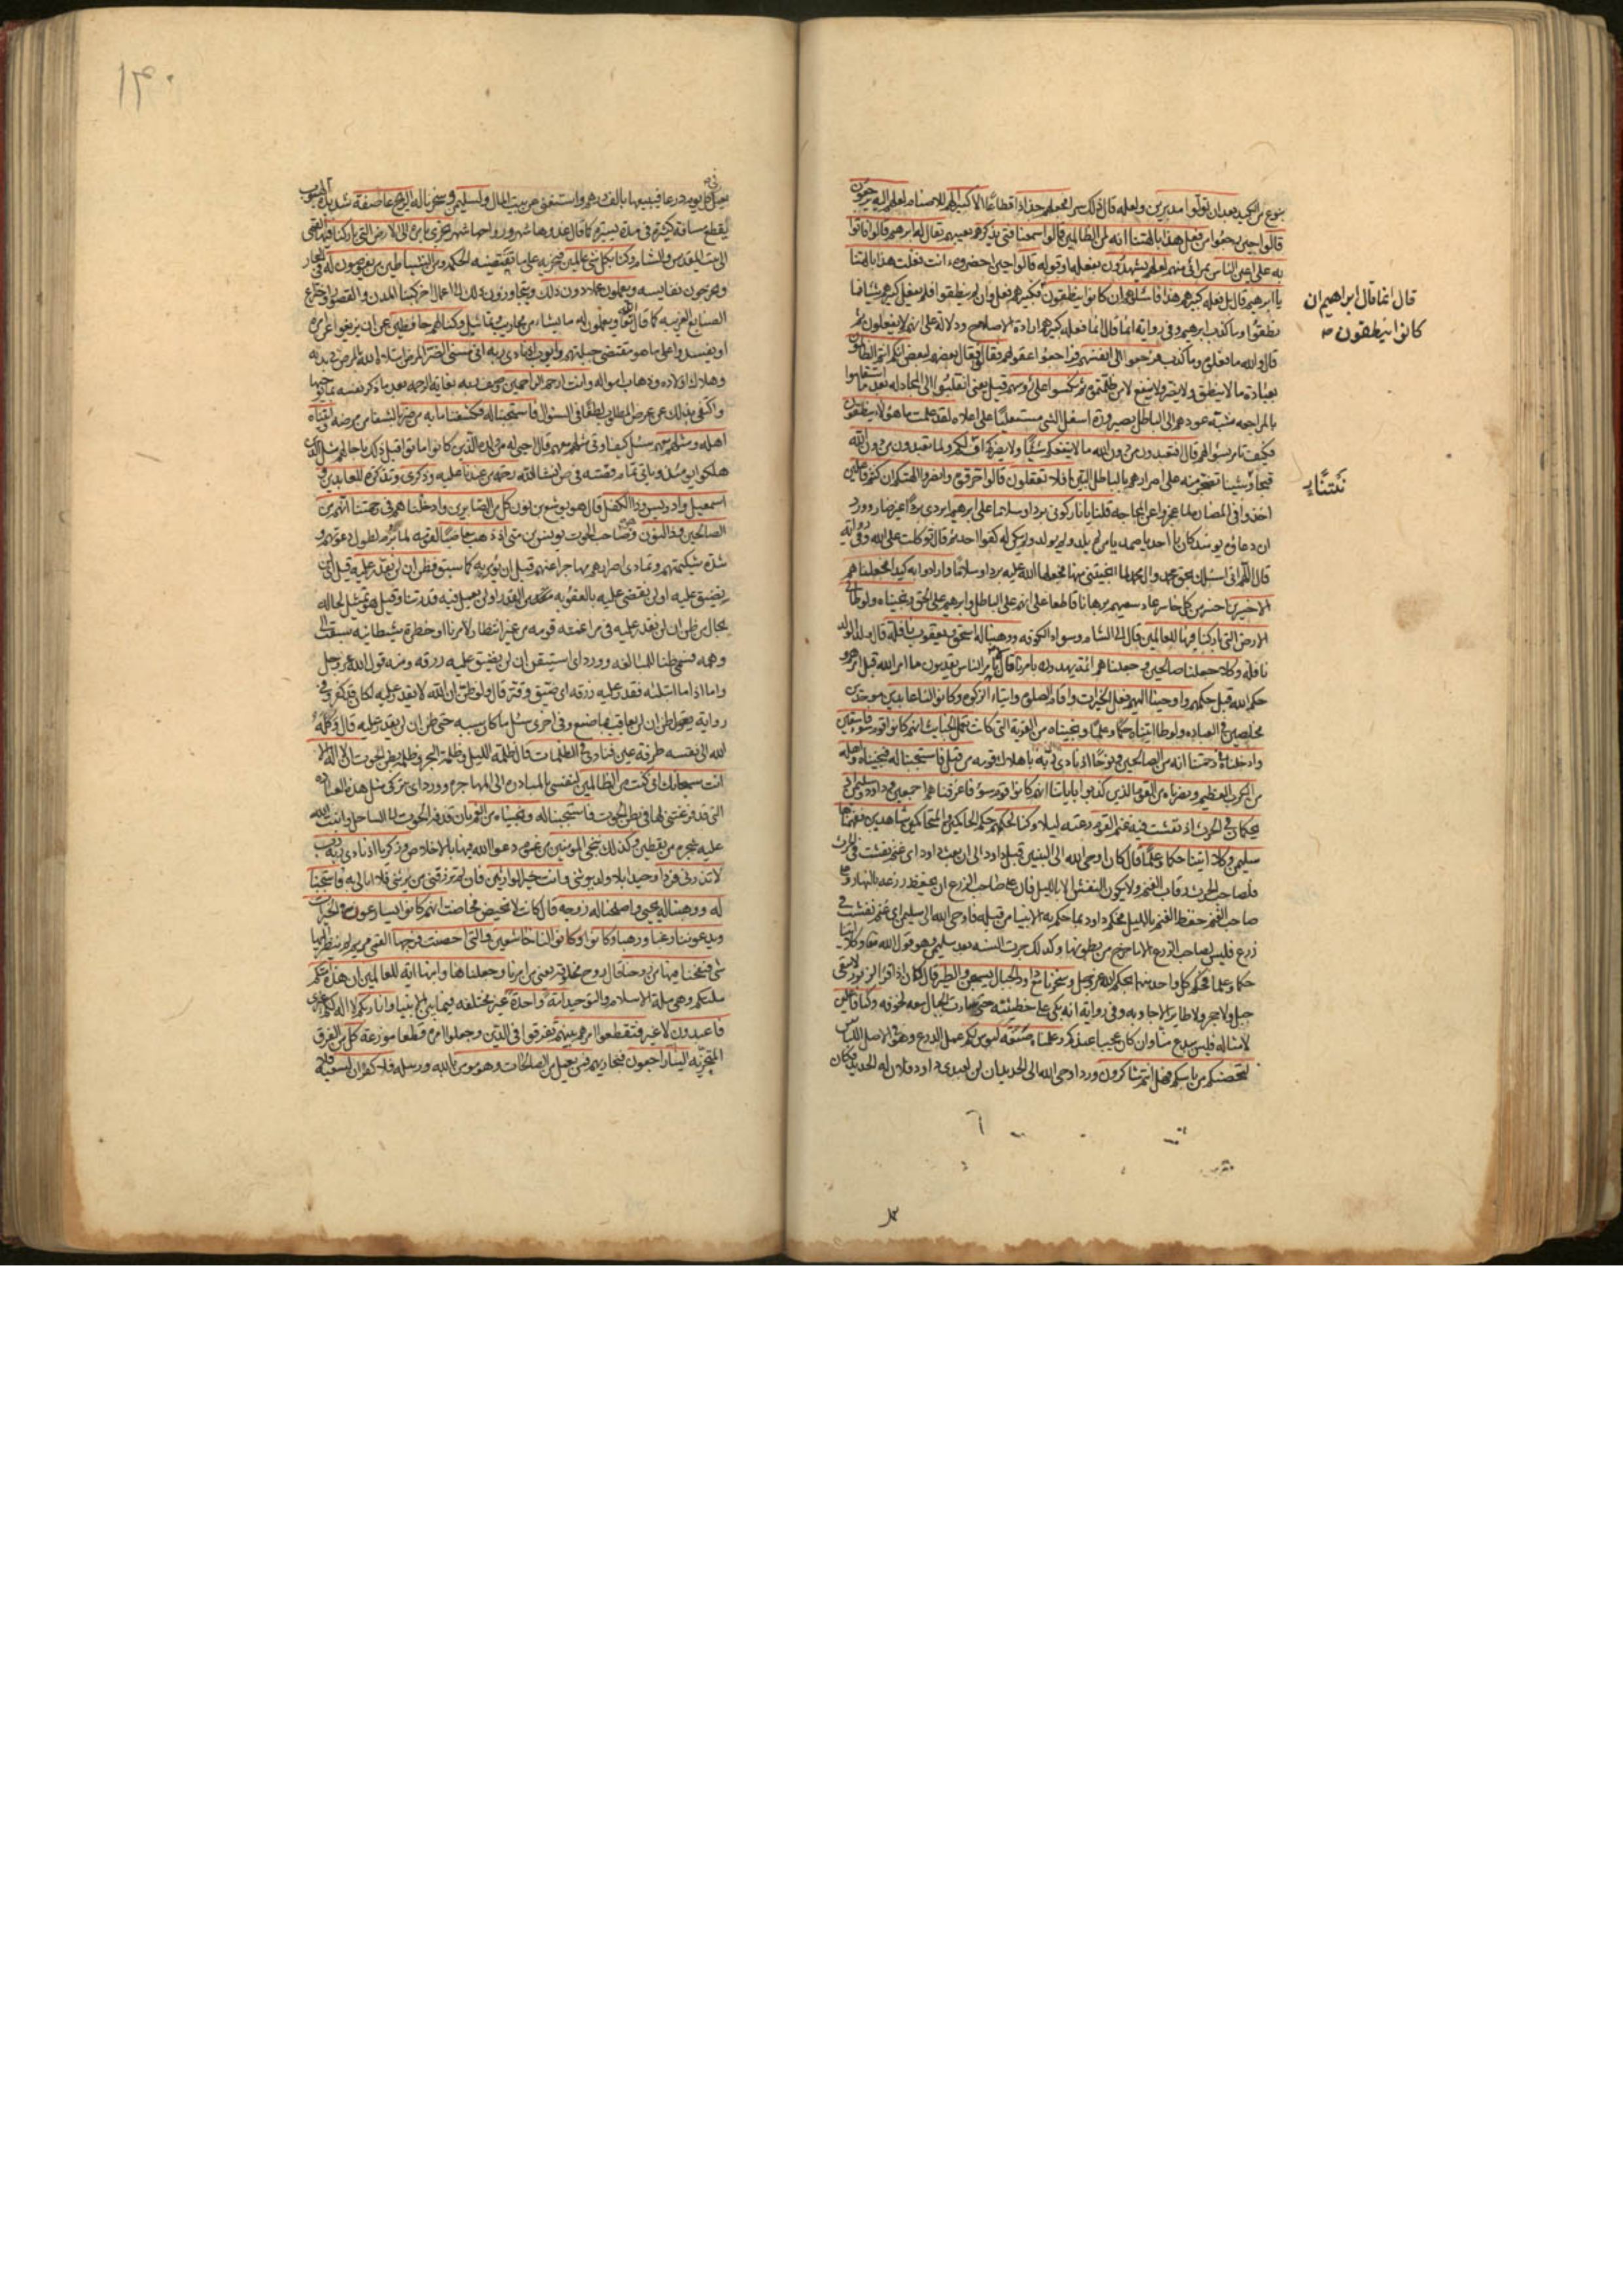 بنوع من الكيد بعد ان تولوا مدبرين ولعله قال ذلك سرا فجعلهم جذاذا قطاعا الا كبيرا لهم للاصنام لعلهم اليه يرجعون
قالوا حين رجعوا من فعل هذا بالهتنا انه لمن الظالمين قالوا سمعنا فتى يذكرهم يعيبهم يقال له ابرهيم قالوا فاتوا
به على اعين الناس بمرأى منهم لعلهم يشهدون بفعله او قوله قالوا حين احضروه ءانت فعلت هذا بالهتنا
يا ابرهيم قال بل فعله كبيرهم هذا فاسئلوهم ان كانوا ينطقون
قال انما قال ابراهيم ان
كانوا ينطقون
نطقوا وما كذب ابرهيم وفي رواية انما قال انما فعله كبيرهم ارادة الاصلاح ودلالة على انهم لا يفعلون ثم
قال والله ما فعلوه وما كذب فرجعوا الى انفسهم فراجعوا عقولهم فقالوا فقال بعضهم لبعض انكم انتم الظالمون
بعبادة ما لا ينطق ولا يضر ولا ينفع لا من ظلمتموه ثم نكسوا على رؤسهم قيل يعني انقلبوا الى المجادلة بعد ما استقاموا
بالمراجعه شبه عودهم الى الباطل بصيرورة اسفل الشئ مستعليا على اعلاه لقد علمت ما هؤلاء ينطقون
فكيف تامر بسؤالهم قال افتعبدون من دون الله ما لا ينفعكم شيئا ولا يضركم اف لكم ولما تعبدون من دون الله
قبحا ونتنا تضجر منه على اصرارهم بالباطل البين افلا تعقلون قالوا حرقوه وانصروا الهتكم ان كنتم فاعلين
نَتَنًا
اخذوا في المضارة لما عجزوا عن المحاجه قلنا يا نار كوني بردا وسلاما على ابرهيم ابردي بردا غير ضار وورد
ان دعاؤه يومئذ كان يا احد يا صمد يا من لم يلد ولم يولد ولم يكن له كفوا احد ثم قال توكلت على الله وفي رواية
قال اللهم اني اسئلك بحق محمد وال محمد لما انجيتني منها فجعلها الله عليه بردا وسلاما وارادوا به كيدا فجعلناهم
الاخسرين اخسر من كل خاسر عاد سعيهم برهانا قاطعا على انهم على الباطل وابرهيم على الحق ونجيناه ولوطا الى
الارض التي باركنا فيها للعالمين قال الى الشام وسواد الكوفه ووهبنا له اسحق ويعقوب نافلة قال ولد الولد
نافلة وكلا جعلنا صالحين وجعلناهم ائمة يهدون بامرنا قال لا بامر الناس يقدمون ما امر الله قبل امرهم و
حكم الله قبل حكمهم واوحينا اليهم فعل الخيرات واقام الصلوة وايتاء الزكوة وكانوا لنا عابدين موحدين
مخلصين في العبادة ولوطا اتيناه حكما وعلما ونجيناه من القرية التي كانت تعمل الخبائث انهم كانوا قوم سوء فاسقين
وادخلناه في رحمتنا انه من الصالحين ونوحا اذ نادى ربه باهلاك قومه من قبل فاستجبنا له فنجيناه واهله
من الكرب العظيم ونصرناه من القوم الذين كذبوا باياتنا انهم كانوا قوم سوء فاغرقناهم اجمعين وداود وسليمن اذ
يحكمان في الحرث اذ نفشت فيه غنم القوم رعته ليلا وكنا لحكمهم حكم الحاكمين والمتحاكمين شاهدين ففهمناها
سليمن وكلا اتينا حكما وعلما قال كان اوحى الله الى النبيين قبل داود الى ان بعث داود اي غنم نفشت في الحرث
فلصاحب الحرث رقاب الغنم ولا يكون النفش الا بالليل فان على صاحب الزرع ان يحفظ زرعه بالنهار وعلى
صاحب الغنم حفظ الغنم بالليل فحكم داود بما حكم به الانبياء من قبله فاوحى الله الى سليمن اي غنم نفشت في
زرع فليس لصاحب الزرع الا ما خرج من بطونها وكذلك جرت السنه بعد سليمن وهو قول الله تعالى وكلا اتينا
حكما وعلما فحكم كل واحد منهما بحكم الله عز وجل وسخرنا مع داود الجبال يسبحن والطير قال كان اذا قرأ الزبور لا يبقى
جبل ولا حجر ولا طاير الا جاوبه وفي رواية انه بكى على خطيئته حتى سارت الجبال معه لخوفه وكنا فاعلين
لامثاله فليس ببدع منا وان كان عجيبا عندكم وعلمناه صنعة لبوس لكم عمل الدرع وهو في الاصل اللباس
لتحصنكم من باسكم فهل انتم شاكرون ورد اوحى الله الى الحديد ان لن لعبدي داود فلان له الحديد فكان
١٣٠
يعمل كل يوم درعا فيبيعها بالف درهم واستغنى عن بيت المال ولسليمن وسخرنا له الريح عاصفة شديدة الهبوب
يقطع مسافة كثيرة في مدة يسيرة كما قال غدوها شهر ورواحها شهر تجري بامره الى الارض التي باركنا فيها يعني
الى بيت المقدس والشام وكنا بكل شئ عالمين فنجريه على ما تقتضيه الحكمه ومن الشياطين من يغوصون له في البحار
ويخرجون نفايسه ويعملون عملا دون ذلك ويتجاوزون ذلك الى اعمال اخر كبناء المدن والقصور واختراع
الصنايع الغريبه كما قال تعالى ويعملون له ما يشاء من محاريب وتماثيل وكنا لهم حافظين عن ان يزيغوا عن امره
او يفسدوا على ما هو مقتضى جبلتهم وايوب اذ نادى ربه اني مسني الضر المرض
وهلاك اولاده وذهاب امواله وانت ارحم الراحمين وصف ربه بغاية الرحمه بعد ما ذكر نفسه بما يوجبها
واكتفى بذلك عن عرض المطلوب لطفا في السؤال فاستجبنا له فكشفنا ما به من ضر بالشفاء من مرضه واتيناه
اهله ومثلهم معهم سئل كيف اوتي مثلهم معهم قال احيى له من ولده الذين كانوا ماتوا قبل ذلك باجالهم مثل الذين
هلكوا يومئذ وياتي تمام قصته في ص انشاء الله رحمة من عندنا عليه وذكرى وتذكرة للعابدين و
اسمعيل وادريس وذا الكفل قال هو يوشع بن نون كل من الصابرين وادخلناهم في رحمتنا انهم من
الصالحين وذا النون وصاحب الحوت يونس بن متى اذ ذهب مغاضبا لقومه لما برم لطول دعوتهم و
شدة شكيمتهم وتمادي اصرارهم مهاجرا عنهم قبل ان يؤمر به كما سبق فظن ان لن نقدر عليه قيل اي لن
نضيق عليه او لن نقضي عليه بالعقوبه من القدر او لن نعمل فيه قدرتنا وقيل هو تمثيل لحاله
بحال من ظن ان لن نقدر عليه في مراغمته قومه من غير انتظار لامرنا او خطرة شيطانيه سبقت الى
وهمه فسمي ظنا للمبالغه وورد اي استيقن ان لن نضيق عليه رزقه ومنه قول الله عز وجل
واما اذا ما ابتليه فقدر عليه رزقه اي ضيق وقتر قال ولو ظن ان الله لا يقدر عليه لكان قد كفر وفي
رواية يقول ظن ان لن يعاقب بما صنع وفي اخرى سئل ما كان سببه حتى ظن ان لن يقدر عليه قال وكله
الله الى نفسه طرفة عين فنادى في الظلمات قال ظلمة الليل وظلمة البحر وظلمة بطن الحوت ان لا اله الا
انت سبحانك اني كنت من الظالمين لنفسي بالمبادرة الى المهاجرة وورد اي بتركي مثل هذه العبادة
التي قد فرغتني لها في بطن الحوت فاستجبنا له ونجيناه من الغم بان قذفه الحوت الى الساحل وانبت الله
عليه شجرة من يقطين وكذلك ننجي المؤمنين من غموم دعوا الله فيها بالاخلاص وزكريا اذ نادى ربه رب
لا تذرني فردا وحيدا بلا ولد يرثني وانت خير الوارثين فان لم ترزقني من يرثني فلا ابالي به فاستجبنا
له ووهبنا له يحيى واصلحنا له زوجه قال كانت لا تحيض فحاضت انهم كانوا يسارعون في الخيرات
ويدعوننا رغبا ورهبا وكانوا لنا خاشعين والتي احصنت فرجها
شئ فنفخنا فيها من روحنا قال روح مخلوقة يعني من امرنا وجعلناها وابنها اية للعالمين ان هذه امتكم
ملتكم وهي ملة الاسلام والتوحيد امة واحدة غير مختلفه فيما بين الانبياء وانا ربكم لا اله لكم غيري
فاعبدون لا غير وتقطعوا امرهم بينهم تفرقوا في الدين وجعلوا امره قطعا موزعة كل من الفرق
المتحزبه الينا راجعون فنجازيهم فمن يعمل من الصالحات وهو مؤمن بالله ورسله فلا كفران لسعيه فلا